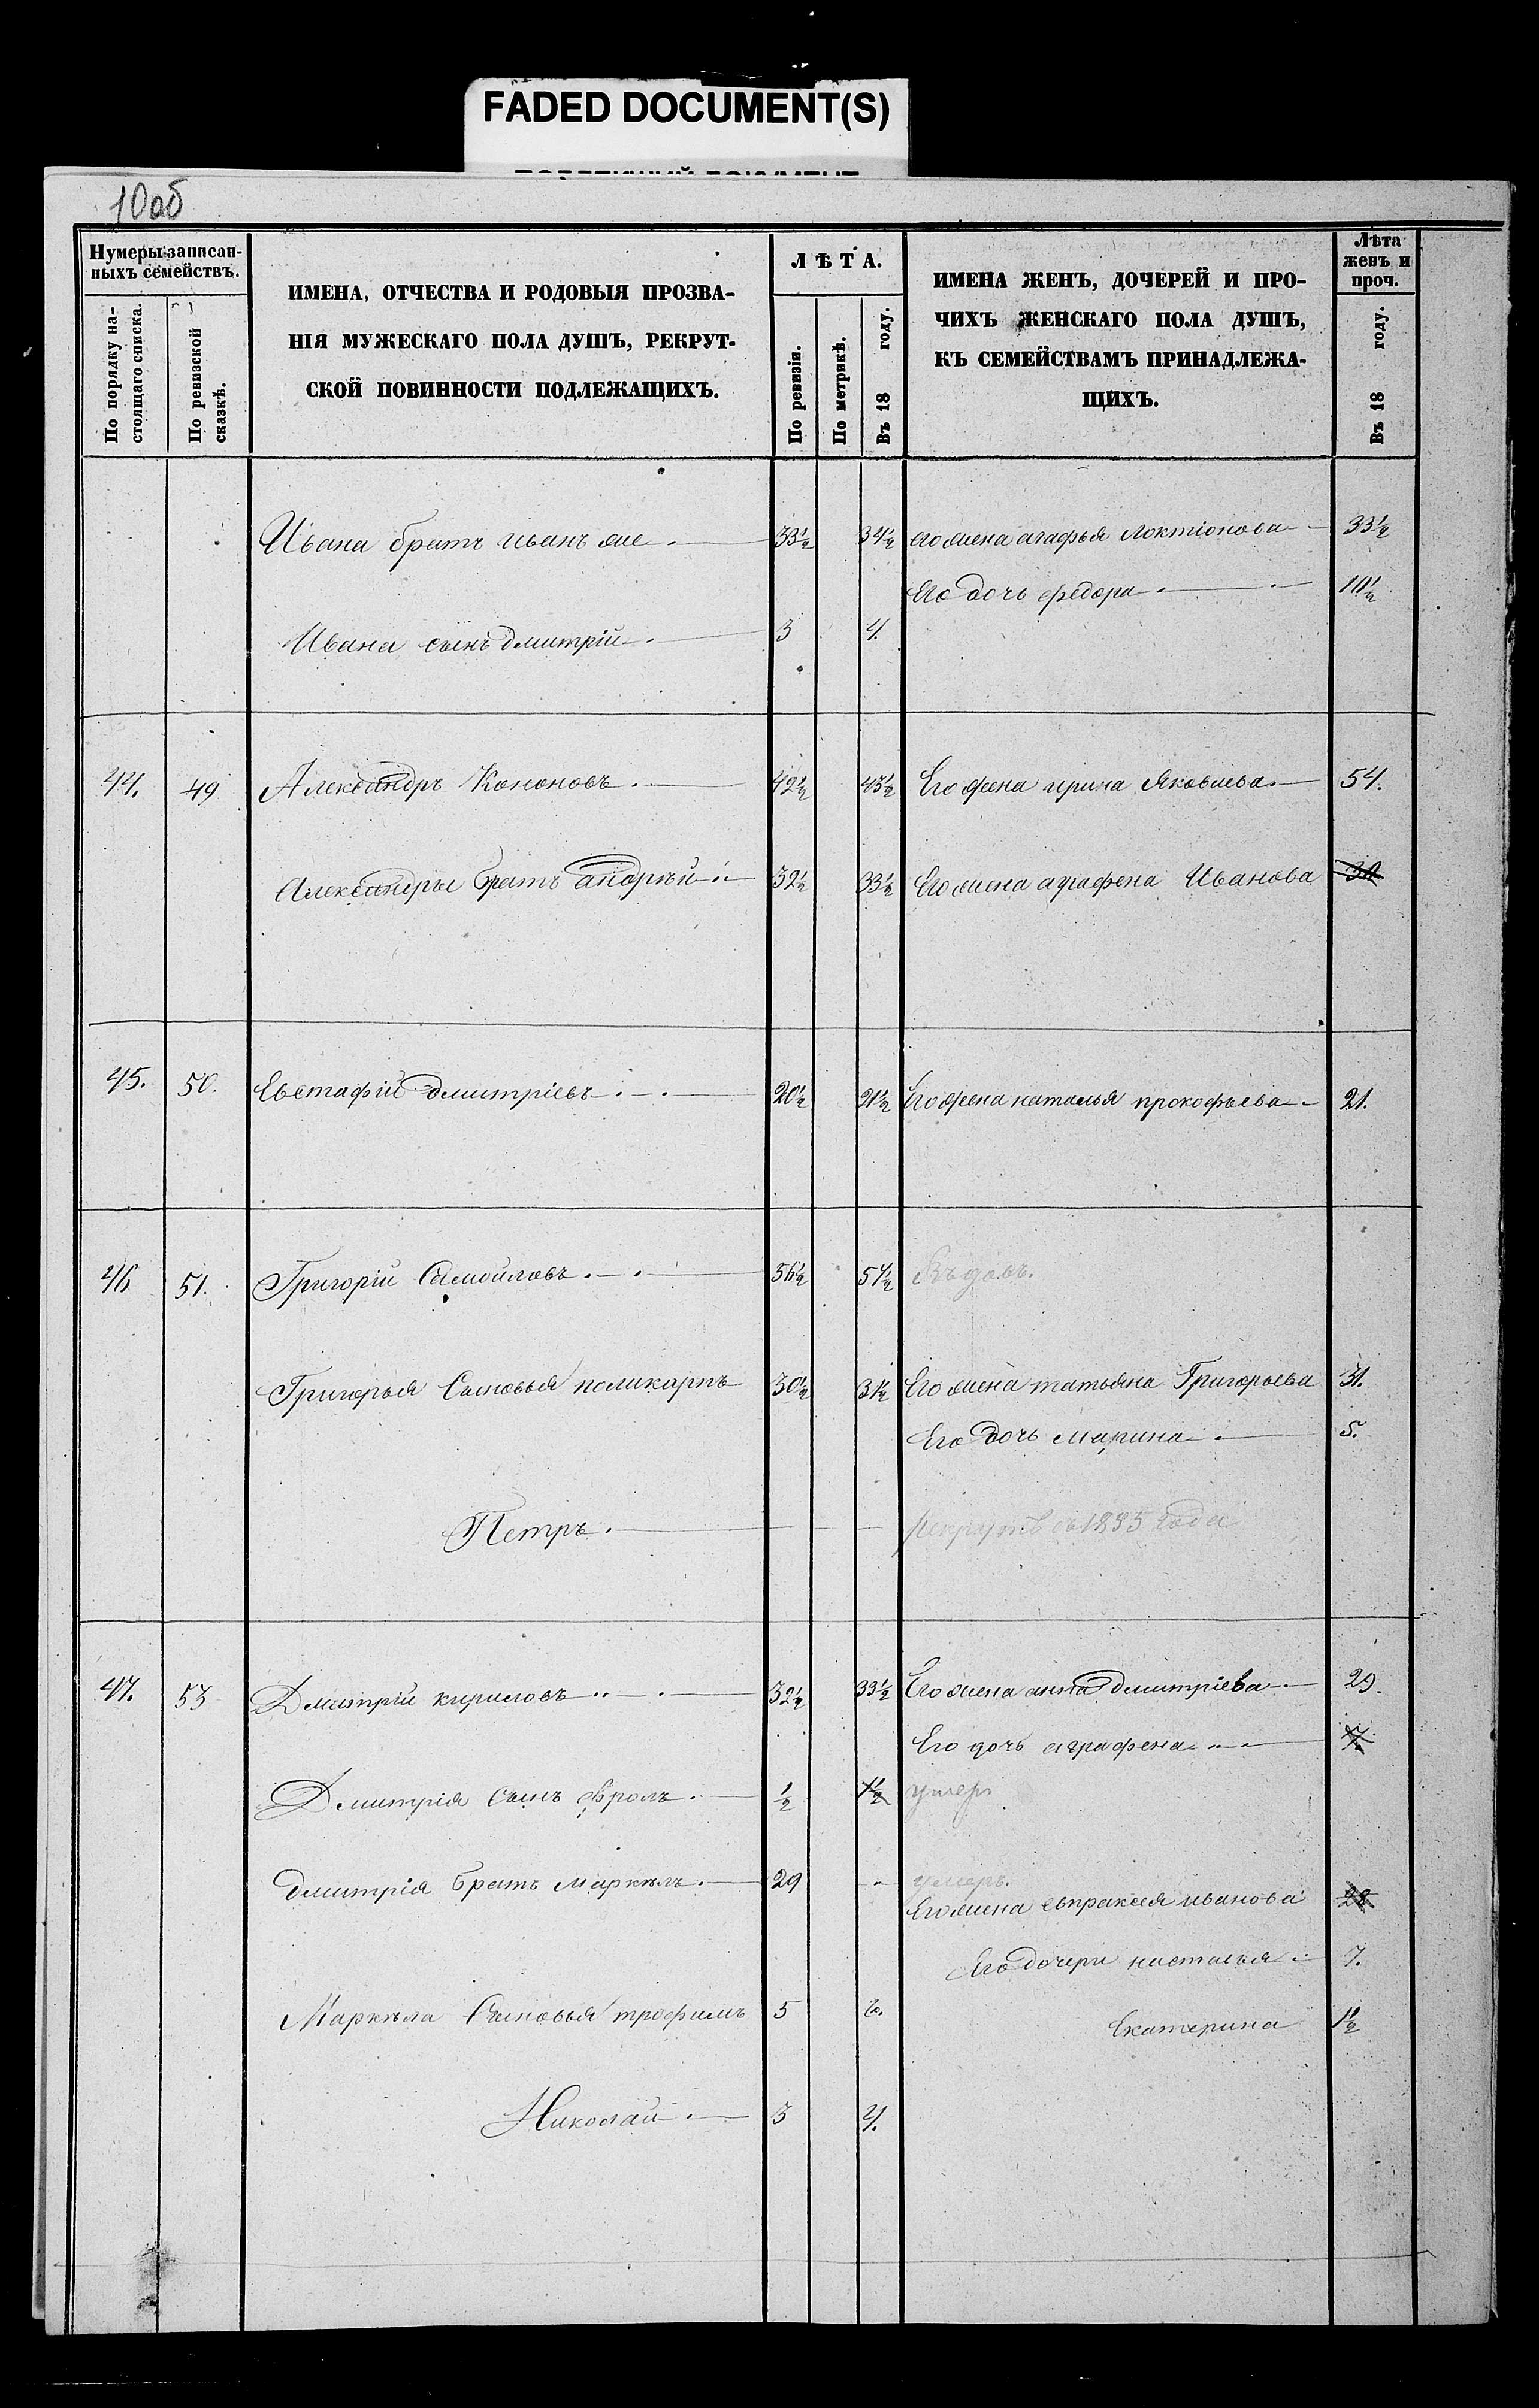 FADED DOCUMENT(S)
10об
Нумеры записан-
ныхъ семействъ.
По порядку на-
стоящаго списка.
По ревизской
сказкѣ.
ИМЕНА, ОТЧЕСТВА И РОДОВЫЯ ПРОЗВА-
НІЯ МУЖЕСКАГО ПОЛА ДУШЪ, РЕКРУТ-
СКОЙ ПОВИННОСТИ ПОДЛЕЖАЩИХЪ.
ЛѢТА.
По ревизіи.
По метрикѣ.
Въ 18 году.
ИМЕНА ЖЕНЪ, ДОЧЕРЕЙ И ПРО-
ЧИХЪ ЖЕНСКАГО ПОЛА ДУШЪ,
КЪ СЕМЕЙСТВАМЪ ПРИНАДЛЕЖА-
ЩИХЪ.
Лѣта
женъ и
проч.
Въ 18 году.
Ивана братъ иванъ же 33½ 34½ его жена агафья локтіонова 33½
Его дочь федора 10½
Ивана сынъ дмитрій 3 4.
44. 49 Александръ Кононовъ 42½ 43½ Его жена ирина Яковлева 54.
Александры братъ андрѣй 32½ 33½ Его жена аграфена Иванова 30
45. 50. Евстафій дмитріевъ 20½ 21½ Его жена наталья прокофьева 21.
46 51. Григорій Самойловъ 56½ 57½ Въдовъ.
Григорья Сыновья поликарпъ 30½ 31½ Его жена татьяна Григорьева 31.
Его дочь марина 5.
Петръ. рекрутъ съ 1835 года
47. 53 Дмитрій кириловъ 32½ 33½ Его жена анна дмитріева 29.
Его дочь аграфена 7.
Дмитрія Сынъ Фролъ ½ 1½ умеръ
дмитрія братъ маркѣлъ 29 умеръ.
Его жена евпраксея иванова 28
Его дочери настасья 7.
Маркѣла Сыновья трофимъ 5 6.
Екатерина 1½
Николай 3 4.